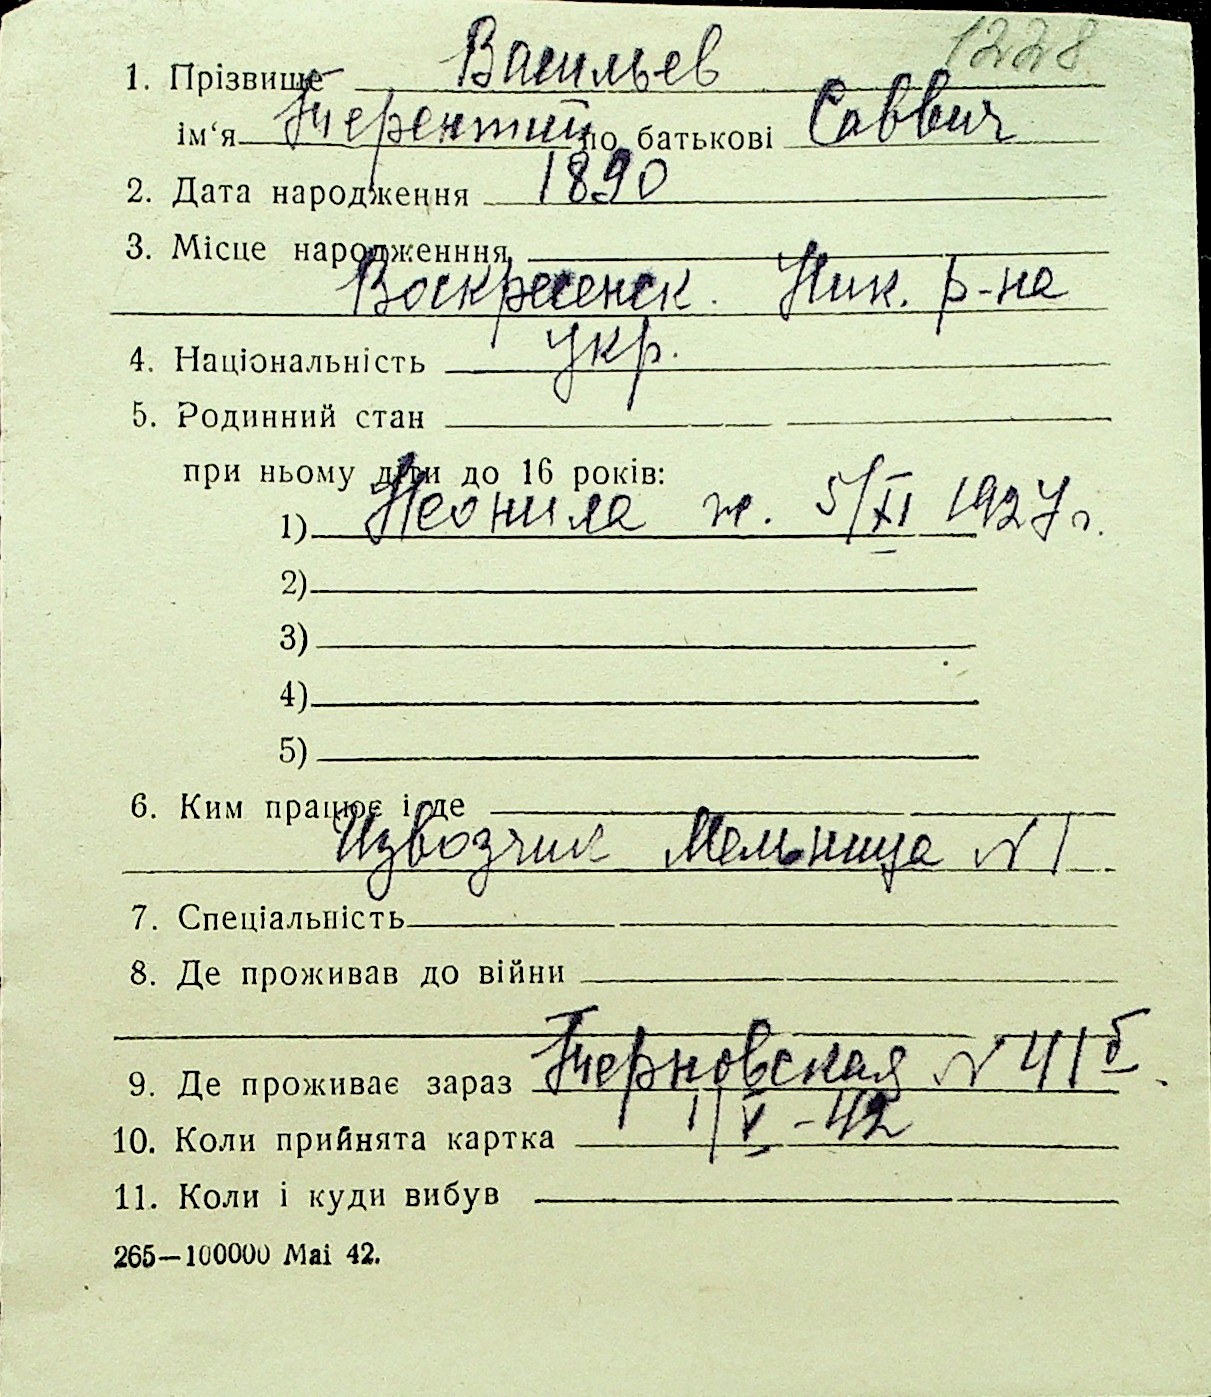 1228
1. Прізвище Васильев
ім‘я Терентий по батькові Саввич
2. Дата народження 1890
3. Місце народженння
Воскресенск. Ник. р-на
4. Національність укр.
5. Родинний стан
при ньому діти до 16 років:
1) Неонила ж. 5/XI 1927 г.
2)
3)
4)
5)
6. Ким працює і де
Извозчик Мельница №1
7. Спеціальність
8. Де проживав до війни
9. Де проживає зараз Терновская № 41б
10. Коли прийнята картка 1/V-42
11. Коли і куди вибув
265—100000 Mai 42.